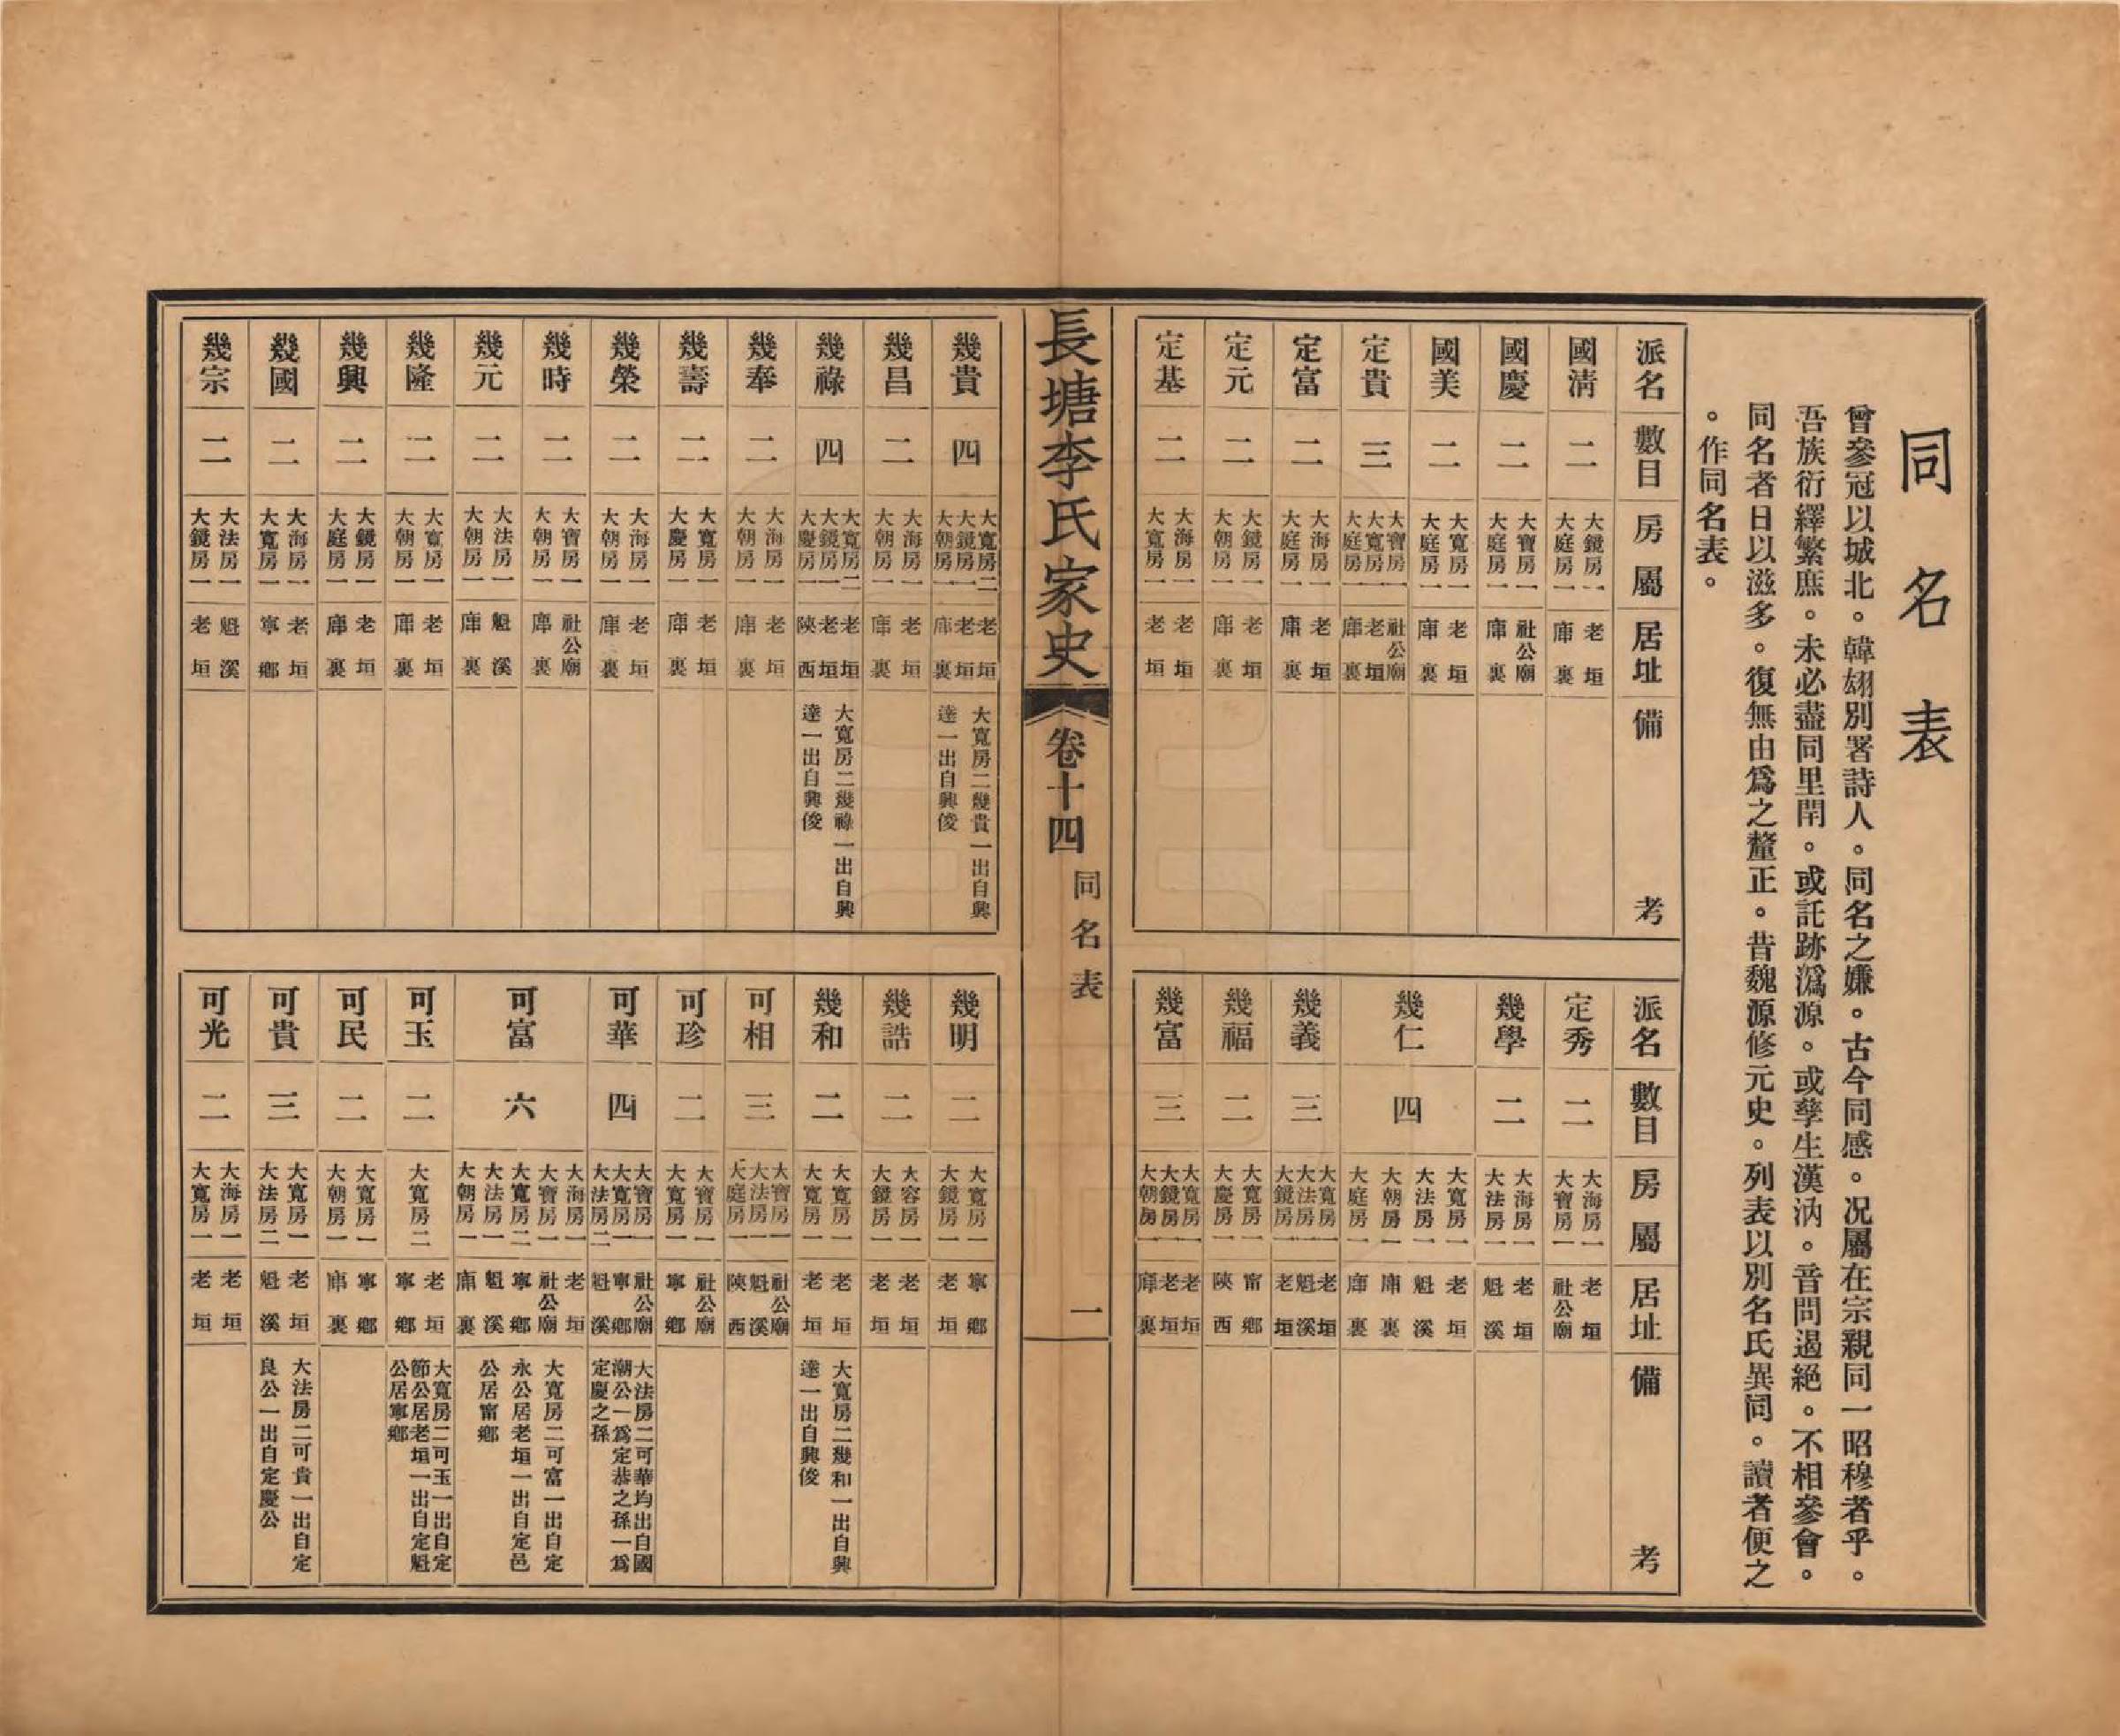 同名表
曾參冠以城北。韓翃別署詩人。同名之嫌。古今同感。况屬在宗親同一昭穆者乎。
吾族衍繹繁庶。未必盡同里閈。或託跡潙源。或孳生漢汭。音問遏絕。不相參會。
同名者日以滋多。復無由爲之釐正。昔魏源修元史。列表以別名氏異同。讀者便之
。作同名表。
派名 數目 房屬 居址 備考
國淸 二 大鏡房一 大庭房一 老垣 庫裏
國慶 二 大寶房一 大庭房一 社公廟 庫裏
國美 二 大寬房一 大庭房一 老垣 庫裏
定貴 三 大寶房一 大寬房一 大庭房一 社公廟 老垣 庫裏
定富 二 大海房一 大庭房一 老垣 庫裏
定元 二 大鏡房一 大朝房一 老垣 庫裏
定基 二 大海房一 大寬房一 老垣 老垣
派名 數目 房屬 居址 備考
定秀 二 大海房一 大寶房一 老垣 社公廟
幾學 二 大海房一 大法房一 老垣 魁溪
幾仁 四 大寬房一 大法房一 大朝房一 大庭房一 老垣 魁溪 庫裏 庫裏
幾義 三 大寬房一 大法房一 大鏡房一 老垣 魁溪 老垣
幾福 二 大寬房一 大慶房一 甯鄉 陝西
幾富 三 大寬房一 大鏡房一 大朝房一 老垣 老垣 庫裏
長塘李氏家史 卷十四 同名表 一
幾貴 四 大寬房二 大鏡房一 大朝房一 老垣 老垣 庫裏 大寬房二幾貴一出自興達一出自興俊
幾昌 二 大海房一 大朝房一 老垣 庫裏
幾祿 四 大寬房二 大鏡房一 大慶房一 老垣 老垣 陝西 大寬房二幾祿一出自興達一出自興俊
幾奉 二 大海房一 大朝房一 老垣 庫裏
幾壽 二 大寬房一 大慶房一 老垣 庫裏
幾榮 二 大海房一 大朝房一 老垣 庫裏
幾時 二 大寶房一 大朝房一 社公廟 庫裏
幾元 二 大法房一 大朝房一 魁溪 庫裏
幾隆 二 大寬房一 大朝房一 老垣 庫裏
幾興 二 大鏡房一 大庭房一 老垣 庫裏
幾國 二 大海房一 大寬房一 老垣 寧鄉
幾宗 二 大法房一 大鏡房一 魁溪 老垣
幾明 二 大寬房一 大鏡房一 寧鄉 老垣
幾誥 二 大容房一 大鏡房一 老垣 老垣
幾和 二 大寬房一 大寬房一 老垣 老垣 大寬房二幾和一出自興達一出自興俊
可相 三 大寶房一 大法房一 大庭房一 社公廟 魁溪 陝西
可珍 二 大寶房一 大寬房一 社公廟 寧鄉
可華 四 大寶房一 大寬房一 大法房二 社公廟 寧鄉 魁溪 大法房二可華均出自國潮公一爲定恭之孫一爲定慶之孫
可富 六 大海房一 大寶房一 大寬房二 大法房一 大朝房一 老垣 社公廟 寧鄉 魁溪 庫裏 大寬房二可富一出自定永公居老垣一出自定邑公居甯鄉
可玉 二 大寬房二 老垣 寧鄉 大寬房二可玉一出自定節公居老垣一出自定魁公居寧鄉
可民 二 大寬房一 大朝房一 寧鄉 庫裏
可貴 三 大寬房一 大法房二 老垣 魁溪 大法房二可貴一出自定良公一出自定慶公
可光 二 大海房一 大寬房一 老垣 老垣